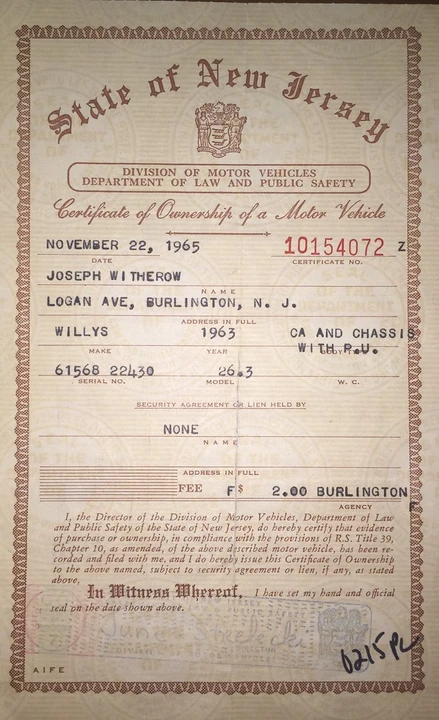 State of New Jersey
DIVISION OF MOTOR VEHICLES
DEPARTMENT OF LAW AND PUBLIC SAFETY
Certificate of Ownership of a Motor Vehicle
NOVEMBER 22, 1965 10154072 Z
DATE CERTIFICATE NO.
JOSEPH WITHEROW
NAME
LOGAN AVE, BURLINGTON, N. J.
ADDRESS IN FULL
WILLYS 1963 CA AND CHASSIS
WITH P.U.
MAKE YEAR BODY TYPE
61568 22430 26.3
SERIAL NO. MODEL W. C.
SECURITY AGREEMENT OR LIEN HELD BY
NONE
NAME
ADDRESS IN FULL
FEE F $ 2.00 BURLINGTON
AGENCY
F
I, the Director of the Division of Motor Vehicles, Department of Law
and Public Safety of the State of New Jersey, do hereby certify that evidence
of purchase or ownership, in compliance with the provisions of R.S. Title 39,
Chapter 10, as amended, of the above described motor vehicle, has been re-
corded and filed with me, and I do hereby issue this Certificate of Ownership
to the above named, subject to security agreement or lien, if any, as stated
above.
In Witness Whereof, I have set my hand and official
seal on the date shown above.
DIRECTOR
AIFE